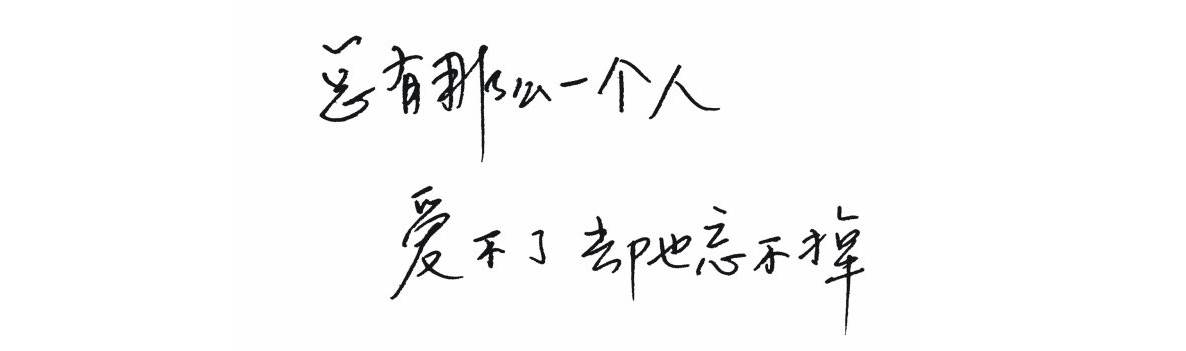 总有那么一个人
爱不了却也忘不掉